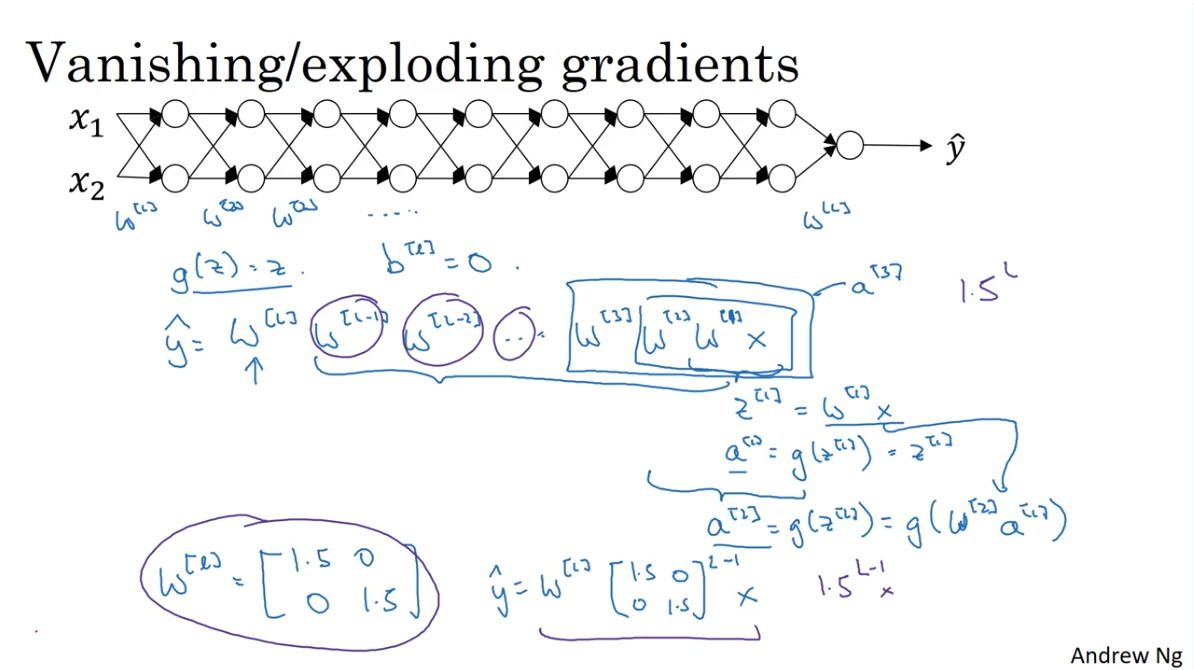 Vanishing/exploding gradients
x₁
x₂
ŷ
w^[1] w^[2] w^[3] ..... w^[L]
g(z) = z. b^[l] = 0.
a^[3]
1.5^L
ŷ = w^[L] w^[L-1] w^[L-2] ... w^[3] w^[2] w^[1] x
z^[1] = w^[1] x
a^[1] = g(z^[1]) = z^[1]
a^[2] = g(z^[2]) = g(w^[2] a^[1])
w^[l] = [1.5 0
0 1.5]
ŷ = w^[L] [1.5 0
0 1.5]^L-1 x
1.5^L-1 x
Andrew Ng